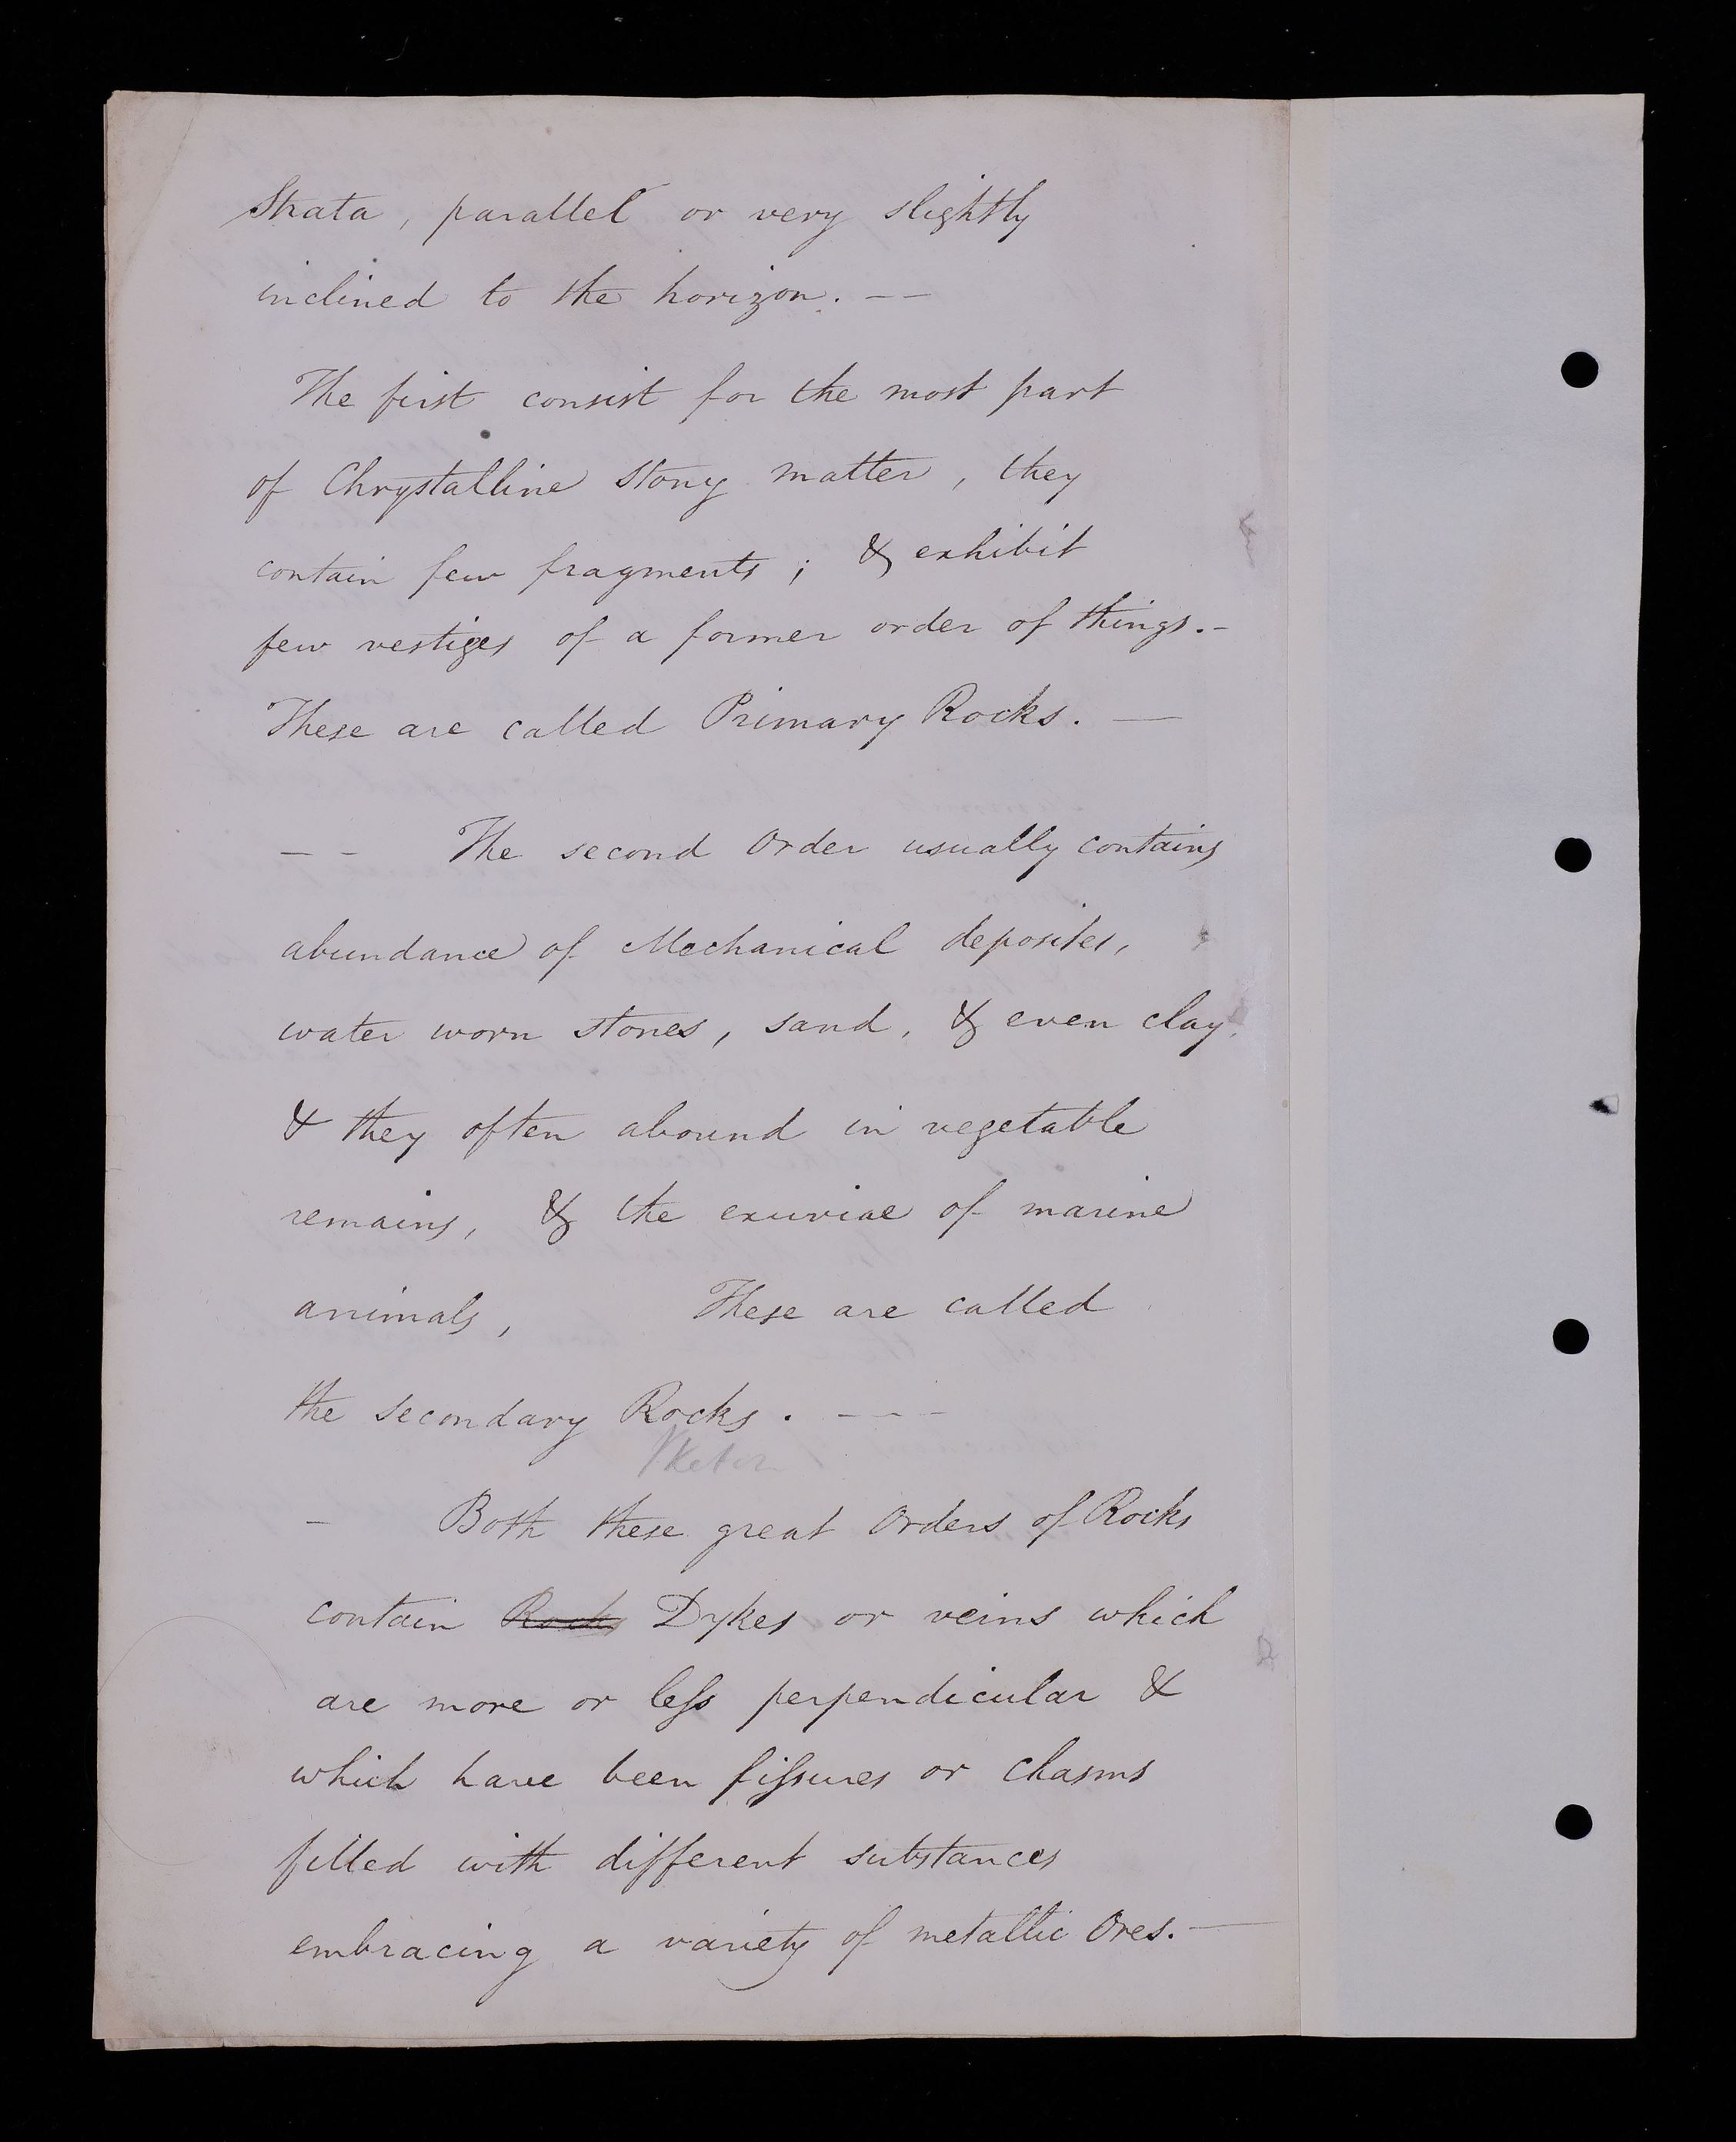 Strata, parallel or very slightly
inclined to the horizon. — —
The first consist for the most part
of Chrystalline stony matter, they
contain few fragments; & exhibit
few vestiges of a former order of things. -
These are called Primary Rocks. —
— - The second order usually contains
abundance of Mechanical deposites,
water worn stones, sand, & even clay,
& they often abound in vegetable
remains, & the exuviae of marine
animals, These are called
the secondary Rocks. - - -
Sketch
- Both these great orders of Rocks
contain Rocks Dykes or veins which
are more or less perpendicular &
which have been fissures or chasms
filled with different substances
embracing a variety of metallic Ores. —